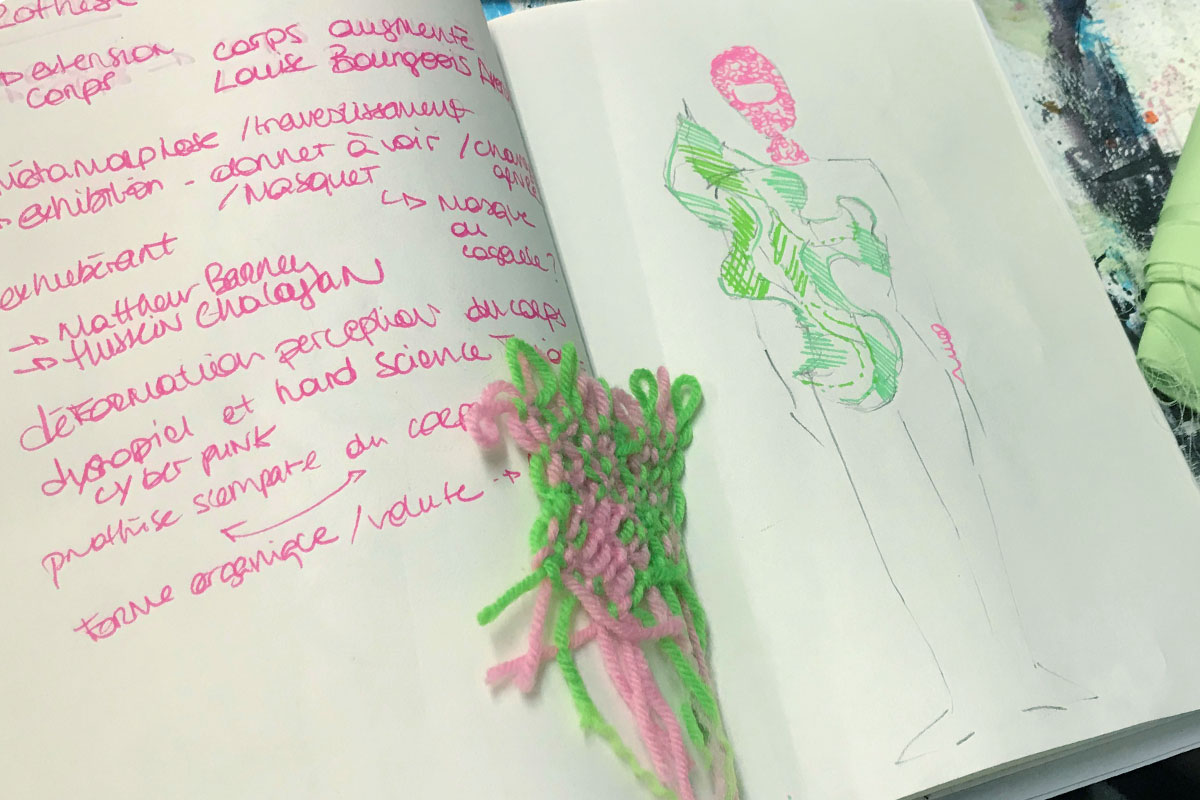 → extension corps augmenté
corps Louise Bourgeois
métamorphose /travestissement
→ exhibition - donner à voir /
/Masquer
↳ masque
ou
cagoule?
exhubérant
→ Matthew Barney
→ Hussein Chalayan
déformation perception du corps
dystopiel et hard science
cyber punk
prothèse scompare du corp
forme organique /volute →